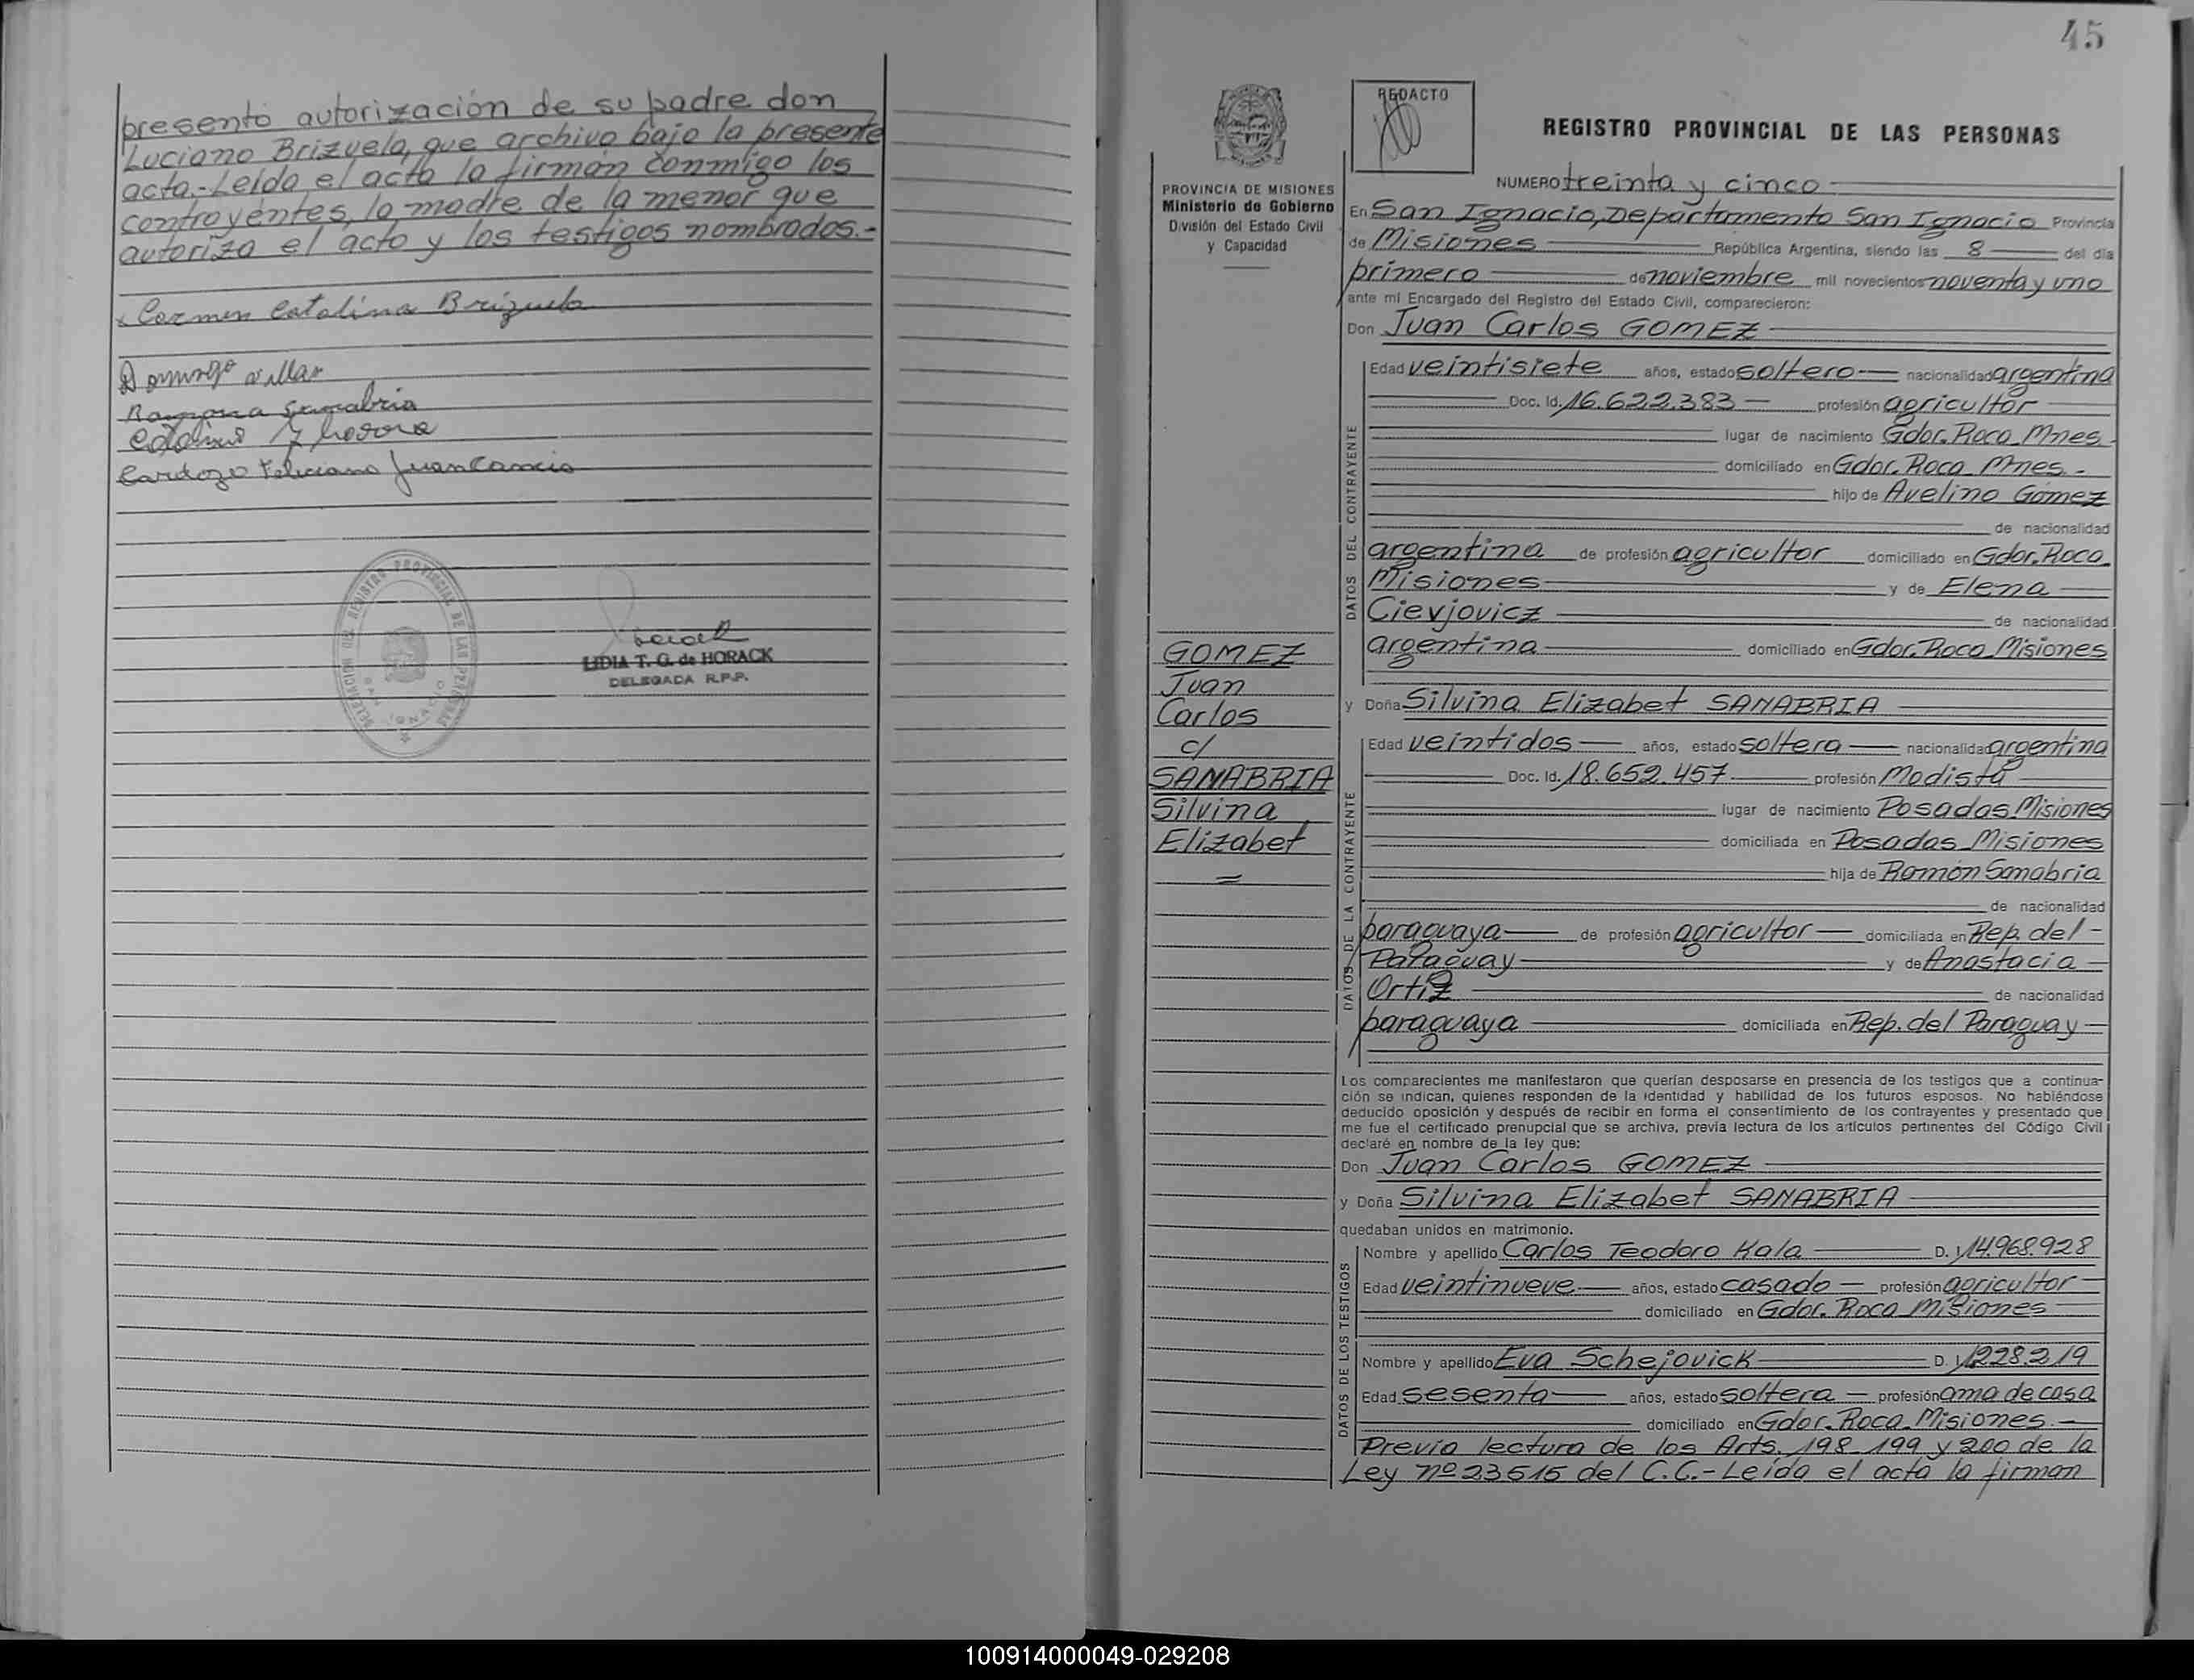 presentó autorización de su padre don
Luciano Brizuela, que archivo bajo la presente
acta.-Leída el acta la firman conmigo los
contrayentes, la madre de la menor que
autoriza el acto y los testigos nombrados.-
Carmen Catalina Brizuela
Domingo
Ramona Sanabria
Cardozo Feliciano Juan Cancio
DELEGACION DEL REGISTRO PROVINCIAL DE LAS PERSONAS
SAN IGNACIO
LIDIA T. G. de HORACK
DELEGADA R.P.P.
45
PROVINCIA DE MISIONES
Ministerio de Gobierno
División del Estado Civil
y Capacidad
REDACTO
REGISTRO PROVINCIAL DE LAS PERSONAS
NUMERO treinta y cinco
En San Ignacio, Departamento San Ignacio Provincia
de Misiones República Argentina, siendo las 8 del día
primero de noviembre mil novecientos noventa y uno
ante mi Encargado del Registro del Estado Civil, comparecieron:
Don Juan Carlos GOMEZ
DATOS DEL CONTRAYENTE
Edad veintisiete años, estado soltero nacionalidad argentina
Doc. Id. 16.622.383 profesión agricultor
lugar de nacimiento Gdor. Roca Mnes.
domiciliado en Gdor. Roca Mnes.-
hijo de Avelino Gómez
de nacionalidad
argentina de profesión agricultor domiciliado en Gdor. Roca
Misiones y de Elena
Cievjovicz de nacionalidad
argentina domiciliado en Gdor. Roca Misiones
GOMEZ
Juan
Carlos
c/
SANABRIA
Silvina
Elizabet
=
y Doña Silvina Elizabet SANABRIA
DATOS DE LA CONTRAYENTE
Edad veintidos años, estado soltera nacionalidad argentina
Doc. Id. 18.652.457 profesión Modista
lugar de nacimiento Posadas Misiones
domiciliada en Posadas Misiones
hija de Ramón Sanabria
de nacionalidad
paraguaya de profesión agricultor domiciliada en Rep. del
Paraguay y de Anastacia
Ortiz de nacionalidad
paraguaya domiciliada en Rep. del Paraguay
Los comparecientes me manifestaron que querían desposarse en presencia de los testigos que a continua-
ción se indican, quienes responden de la identidad y habilidad de los futuros esposos. No habiéndose
deducido oposición y después de recibir en forma el consentimiento de los contrayentes y presentado que
me fue el certificado prenupcial que se archiva, previa lectura de los artículos pertinentes del Código Civil
declaré en nombre de la ley que:
Don Juan Carlos GOMEZ
y Doña Silvina Elizabet SANABRIA
quedaban unidos en matrimonio.
DATOS DE LOS TESTIGOS
Nombre y apellido Carlos Teodoro Kala D. I. 14.968.928
Edad veintinueve años, estado casado profesión agricultor
domiciliado en Gdor. Roca Misiones
Nombre y apellido Eva Schejovick D. I.
Edad sesenta años, estado soltera profesión ama de casa
domiciliado en Gdor. Roca Misiones.-
Previa lectura de los Arts. 198 199 y 200 de la
Ley nº 23515 del C.C.-Leída el acta la firman
100914000049-029208